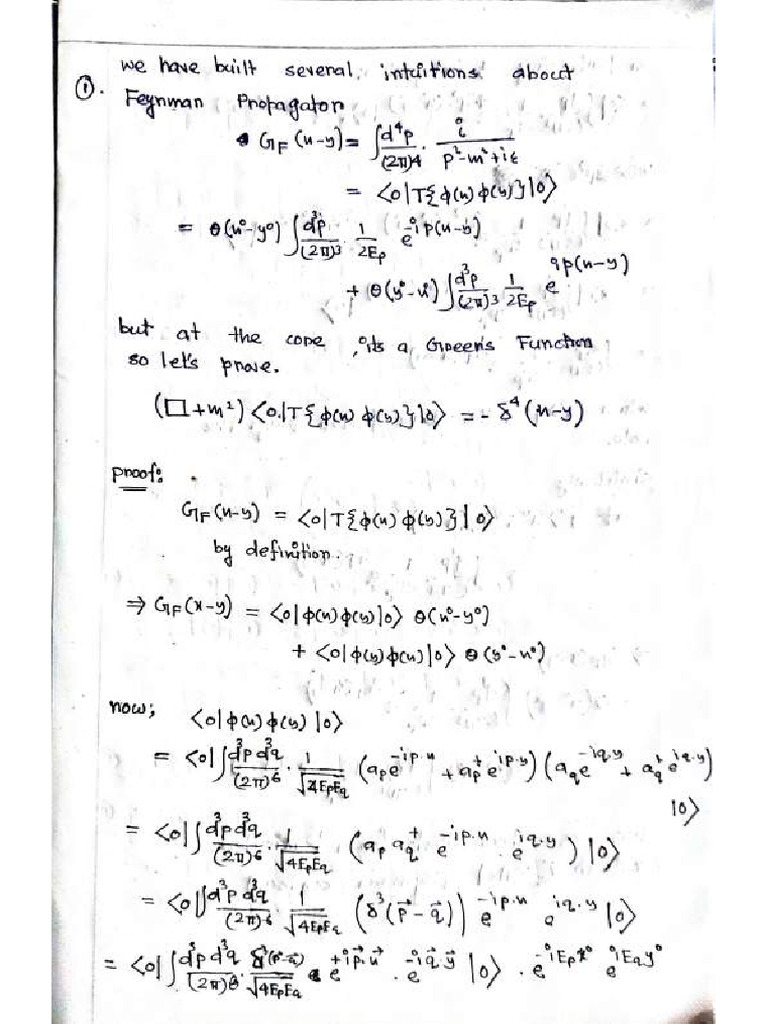 ①. we have built several intuitions about
Feynman Propagator
G_F(x-y) = ∫ d⁴p/(2π)4 · i/(p²-m²+iε)
= <0|T{φ(x) φ(y)}|0>
= θ(x⁰-y⁰) ∫ d³p/(2π)3 · 1/2E_p e^{-ip(x-y)}
+ θ(y⁰-x⁰) ∫ d³p/(2π)3 1/2E_p e^{ip(x-y)}
but at the core, its a Green's Function
so let's prove.
(□+m²) <0|T{φ(x) φ(y)}|0> = -δ⁴(x-y)
proof:
G_F(x-y) = <0|T{φ(x) φ(y)}|0>
by definition.
⇒ G_F(x-y) = <0|φ(x)φ(y)|0> θ(x⁰-y⁰)
+ <0|φ(y)φ(x)|0> θ(y⁰-x⁰)
now; <0|φ(x)φ(y)|0>
= <0|∫ d³p d³q/(2π)6 · 1/√4E_pE_q (a_p e^{-ip·x} + a_p† e^{ip·x})(a_q e^{-iq·y} + a_q† e^{iq·y})
|0>
= <0|∫ d³p d³q/(2π)6 · 1/√4E_pE_q (a_p a_q† e^{-ip·x} e^{iq·y})|0>
= <0|∫ d³p d³q/(2π)6 · 1/√4E_pE_q (δ³(p⃗-q⃗)) e^{-ip·x} e^{iq·y}|0>
= <0|∫ d³p d³q/(2π)6 δ³(p⃗-q⃗)/√4E_pE_q e^{+ip⃗·x⃗} · e^{-iq⃗·y⃗}|0> · e^{-iE_p x⁰} e^{iE_q y⁰}